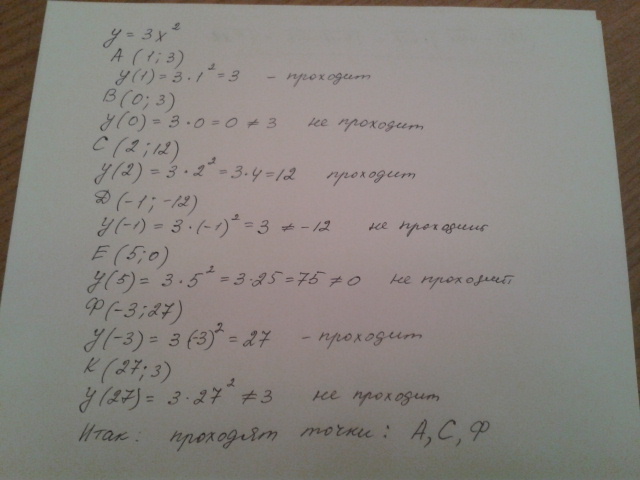 y = 3x²
А (1; 3)
y(1) = 3 · 1² = 3 - проходит
В (0; 3)
y(0) = 3 · 0 = 0 ≠ 3 не проходит
С (2; 12)
y(2) = 3 · 2² = 3 · 4 = 12 проходит
Д (-1; -12)
y(-1) = 3 · (-1)² = 3 ≠ -12 не проходит
Е (5; 0)
y(5) = 3 · 5² = 3 · 25 = 75 ≠ 0 не проходит
Ф (-3; 27)
y(-3) = 3 (-3)² = 27 - проходит
К (27; 3)
y(27) = 3 · 27² ≠ 3 не проходит
Итак: проходят точки: А, С, Ф